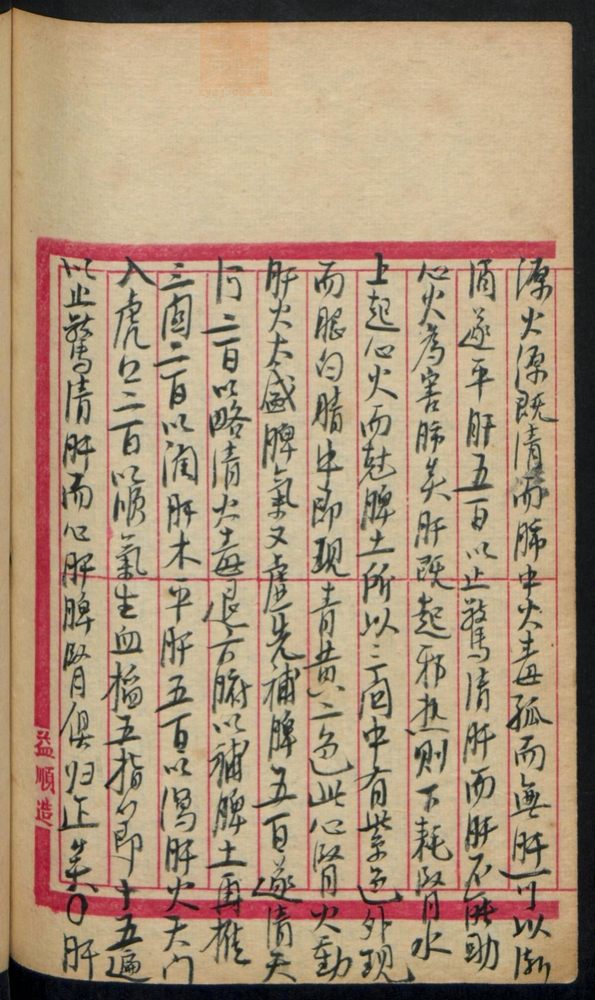 源火源既清而肺中火毒孤而無肝可以漸
消遂平肝五百以止驚清肝而肝不能助
心火為害肺矣肝既起邪熱則下耗腎水
上起心火而尅脾土所以三関中有紫色外現
而眼白睛中即現青黄二色此心腎火動
肝火太盛脾氣又虛先補脾五百遂清天
河二百以略清火毒退六腑以補脾土再推
三関二百以潤肝木平肝五百以瀉肝火天门
入虎口二百以順氣生血搯五指節十五遍
以止驚清肝而心肝脾腎俱归正矣〇肝
益順造